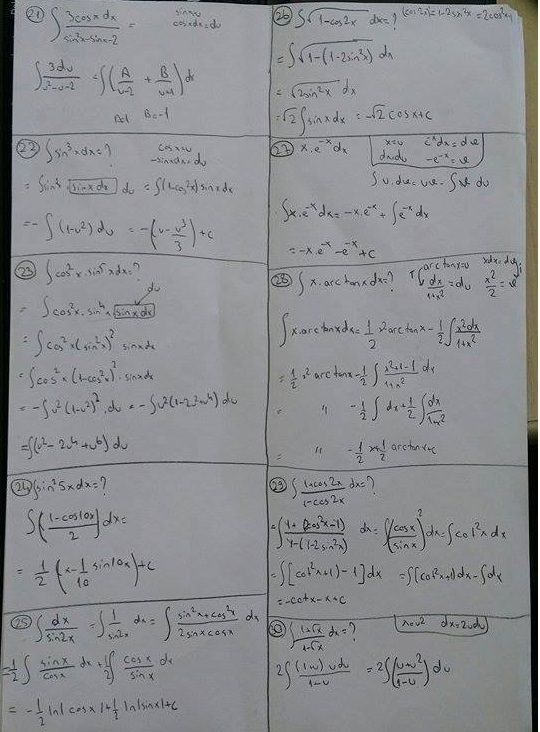 21) ∫ 3cosx dx / sin²x-sinx-2 = sinx=u cosxdx=du
∫ 3du / u²-u-2 = ∫( A / u-2 + B / u+1 ) dx
A=1 B=-1
22) ∫ sin³x dx=? cosx=u -sinxdx=du
= ∫ sin²x sinxdx du = ∫(1-cos²x) sinxdx
= - ∫ (1-u²) du = -(u - u³/3) + c
23) ∫ cos²x . sin⁵x dx=?
du
= ∫ cos²x . sin⁴x sinxdx
= ∫ cos²x (sin²x)² sinxdx
= ∫ cos²x (1-cos²x)² . sinxdx
= - ∫ u² (1-u²)² . du = - ∫ u² (1-2u²+u⁴) du
= ∫ (u² - 2u⁴ + u⁶) du
24) ∫ sin²5x dx=?
∫ ( 1-cos10x / 2 ) dx=
= 1/2 ( x - 1/10 sin10x ) + c
25) ∫ dx / sin2x = ∫ 1 / sin2x dx = ∫ sin²x+cos²x / 2sinxcosx dx
= 1/2 ∫ sinx / cosx dx + 1/2 ∫ cosx / sinx dx
= - 1/2 ln|cosx| + 1/2 ln|sinx| + c
26) ∫ √1-cos2x dx=? (cos2x)=1-2sin²x=2cos²x-1
= ∫ √1-(1-2sin²x) dx
= √2sin²x dx
= √2 ∫ sinxdx = -√2 cosx+c
27) x.e⁻ˣ dx x=u e⁻ˣdx=dv
dx=du -e⁻ˣ=v
∫ u.dv = uv - ∫ v du
∫ x.e⁻ˣ dx = -x.e⁻ˣ + ∫ e⁻ˣ dx
= -x.e⁻ˣ - e⁻ˣ + c
28) ∫ x.arctanx dx=? arctanx=u xdx=dv
dx / 1+x² = du x²/2 = v
∫ x.arctanxdx = 1/2 x² arctanx - 1/2 ∫ x²dx / 1+x²
= 1/2 x² arctanx - 1/2 ∫ x²+1-1 / 1+x² dx
= " - 1/2 ∫ dx + 1/2 ∫ dx / 1+x²
= " - 1/2 x + 1/2 arctanx+c
29) ∫ 1+cos2x / 1-cos2x dx=?
= ∫ 1+(2cos²x-1) / 1-(1-2sin²x) dx = ∫ (cosx / sinx)² dx = ∫ cot²x dx
= ∫ [(cot²x+1)-1] dx = ∫ (cot²x+1)dx - ∫ dx
= -cotx-x+c
30) ∫ 1+√x / 1-√x dx=? x=u² dx=2udu
2 ∫ (1+u) u du / 1-u = 2 ∫ ( u+u² / 1-u ) du